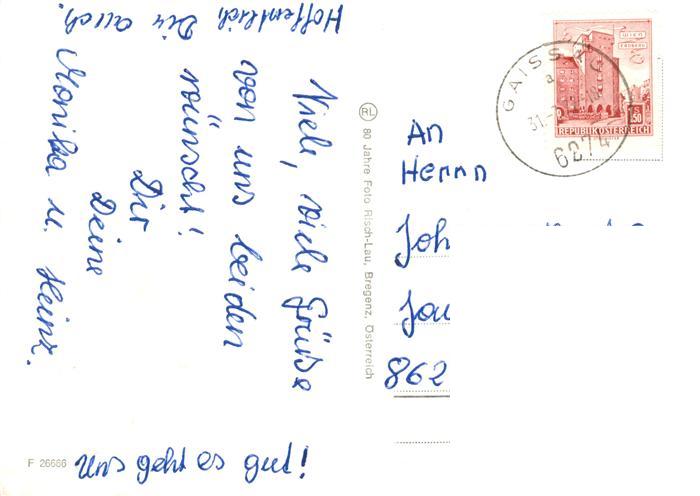 Viele, viele Grüße
von uns beiden
wünscht!
Dir
Deine
Monika u. Heinz.
Uns geht es gut!
Hoffentlich Dir auch.
An
Herrn
Joh
Jau
862
RL 80 Jahre Foto Risch-Lau, Bregenz, Österreich
F 26666
WIEN
ERDBERG
S 1.50
REPUBLIK ÖSTERREICH
a
31.
6874